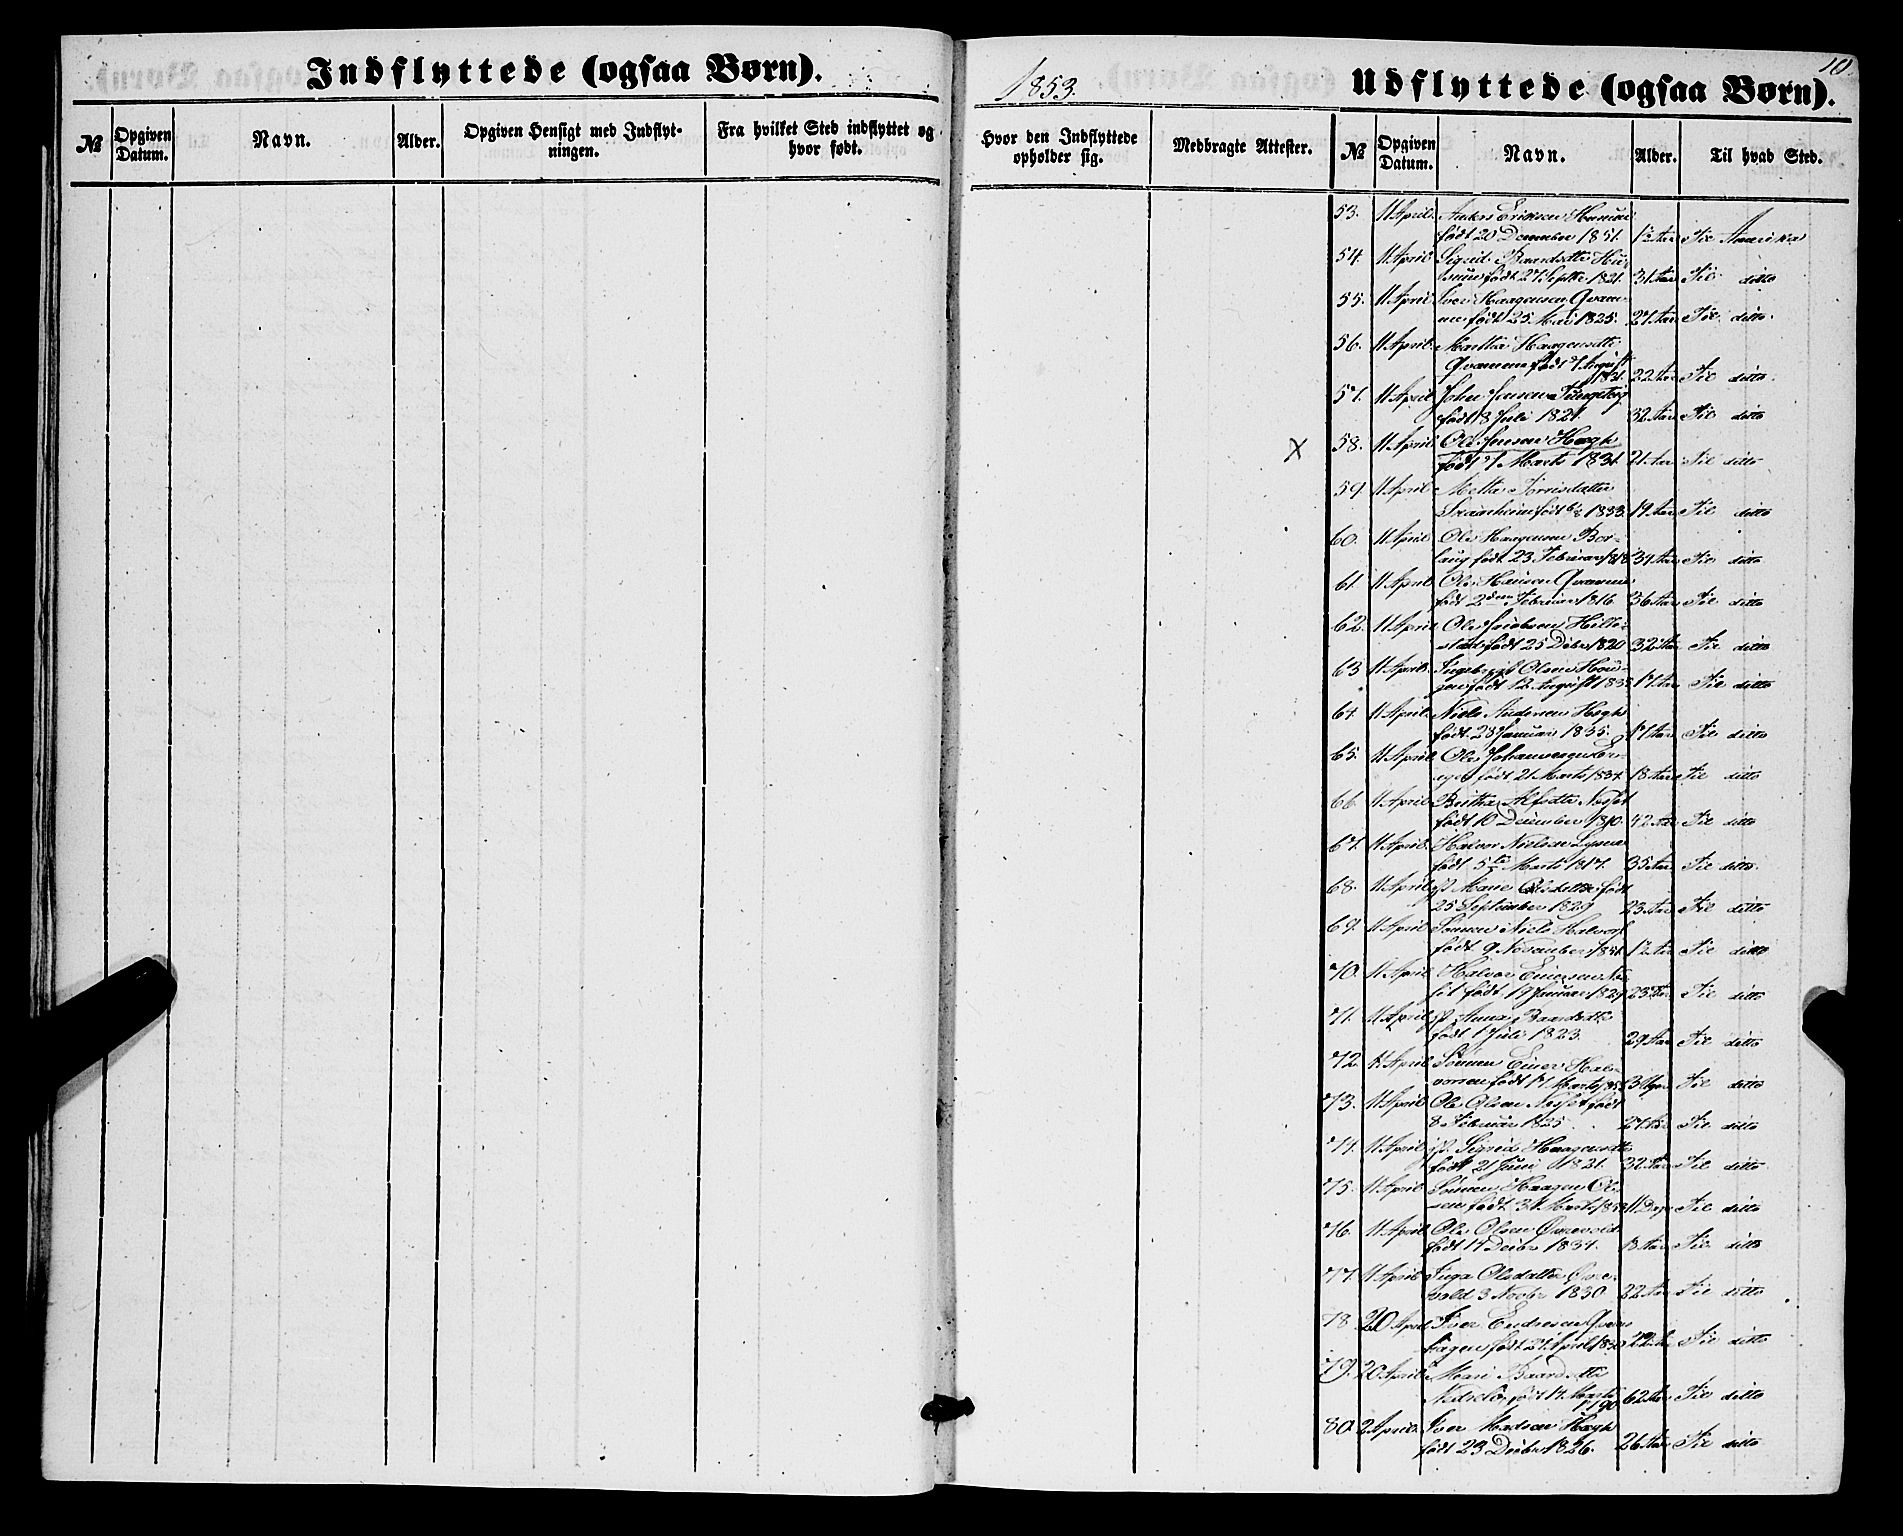 Indflyttede (ogsaa Børn).
№
Opgiven Datum.
Navn.
Alder.
Opgiven Hensigt med Indflyt-
ningen.
Fra hvilket Sted indflyttet og
hvor født.
1853.
Udflyttede (ogsaa Børn).
10
Hvor den Indflyttede
opholder sig.
Medbragte Attester.
№
Opgiven Datum.
Navn.
Alder.
Til hvad Sted.
53. 11 April Anders Eriksen
født 20 December 1851. 1½ Aar Til Amerika
54. 11 April Sigrid Baardsdtr
født 27 Septbr 1821. 31 Aar Til ditto
55. 11 April Iver Haagensen Qvam-
men født 25 Mai 1825. 27 Aar Til ditto.
56. 11 April Martha Haagensdtr
Qvamme født 7 August
1831. 22 Aar Til ditto.
57. 11 April John Jensen
født 8 Juli 1821. 32 Aar Til ditto
X 58. 11 April Ole Jensen Hægh
født 7 Marts 1831. 21 Aar Til ditto
59. 11 April Metta
født 1833. 19 Aar Til ditto
60. 11 April Ole Haagensen Bor-
laug født 23 Februar 1818 34 Aar Til ditto
61. 11 April Ole Hansen Qvamme
født 2den Februar 1816. 36 Aar Til ditto
62. 11 April Ole Jacobsen Hille-
stad født 25 Debr 1820 32 Aar Til ditto
63 11 April. Ingebrigt Olsen Hou-
gen født 12 August 1835 17 Aar Til ditto
64. 11 April. Niels Andersen Hægh
født 28 Januar 1835. 17 Aar Til ditto
65. 11 April Ole Johannesen
født 21 Marts 1834. 18 Aar Til ditto
66. 11 April Britha Alfsdtr Nesset
født 10 December 1810. 42 Aar Til ditto
67. 11 April. Halvor Nielsen
født 5te Marts 1817. 35 Aar Til ditto.
68. 11 April Marie Olsdatter født
25 September 1829 23 Aar Til ditto
69. 11 April Sønnen Niels Halvors
født 9 November 1851. 1½ Aar Til ditto
70. 11 April Halvor Einersen Nes-
set født 19 Januar 1829 23 Aar Til ditto
71. 11 April Anna Baardsdtr
født 1 Juli 1823. 29 Aar Til ditto
72. 11 April Sønnen Einer Hal-
vorsen født 17 Marts 3 Uger Til ditto
73. 11 April Ole Olsen Nesset født
8 Februar 1825. 27 Aar Til ditto
74. 11 April Sigrid Haagensdtr
født 21 Juni 1821. 32 Aar Til ditto
75. 11 April Sønnen Haagen Ol-
sen født 31 Marts 1853 11 Dage Til ditto
76. 11 April Ole Olsen Øvrevold
født 14 Decbr 1834. 18 Aar Til ditto
77. 11 April Inga Olsdatter Øvre-
vold 3 Novbr 1830 22 Aar Til ditto
78 20 April Iver Endresen
født 27 April 1830 22 Aar Til ditto
79. 20 April Mari Baardsdtr
født 14 Marts
1790 62 Aar Til ditto
80. 2 April. Iver Madsen Hægh
født 23 Decbr 1826. 26 Aar Til ditto